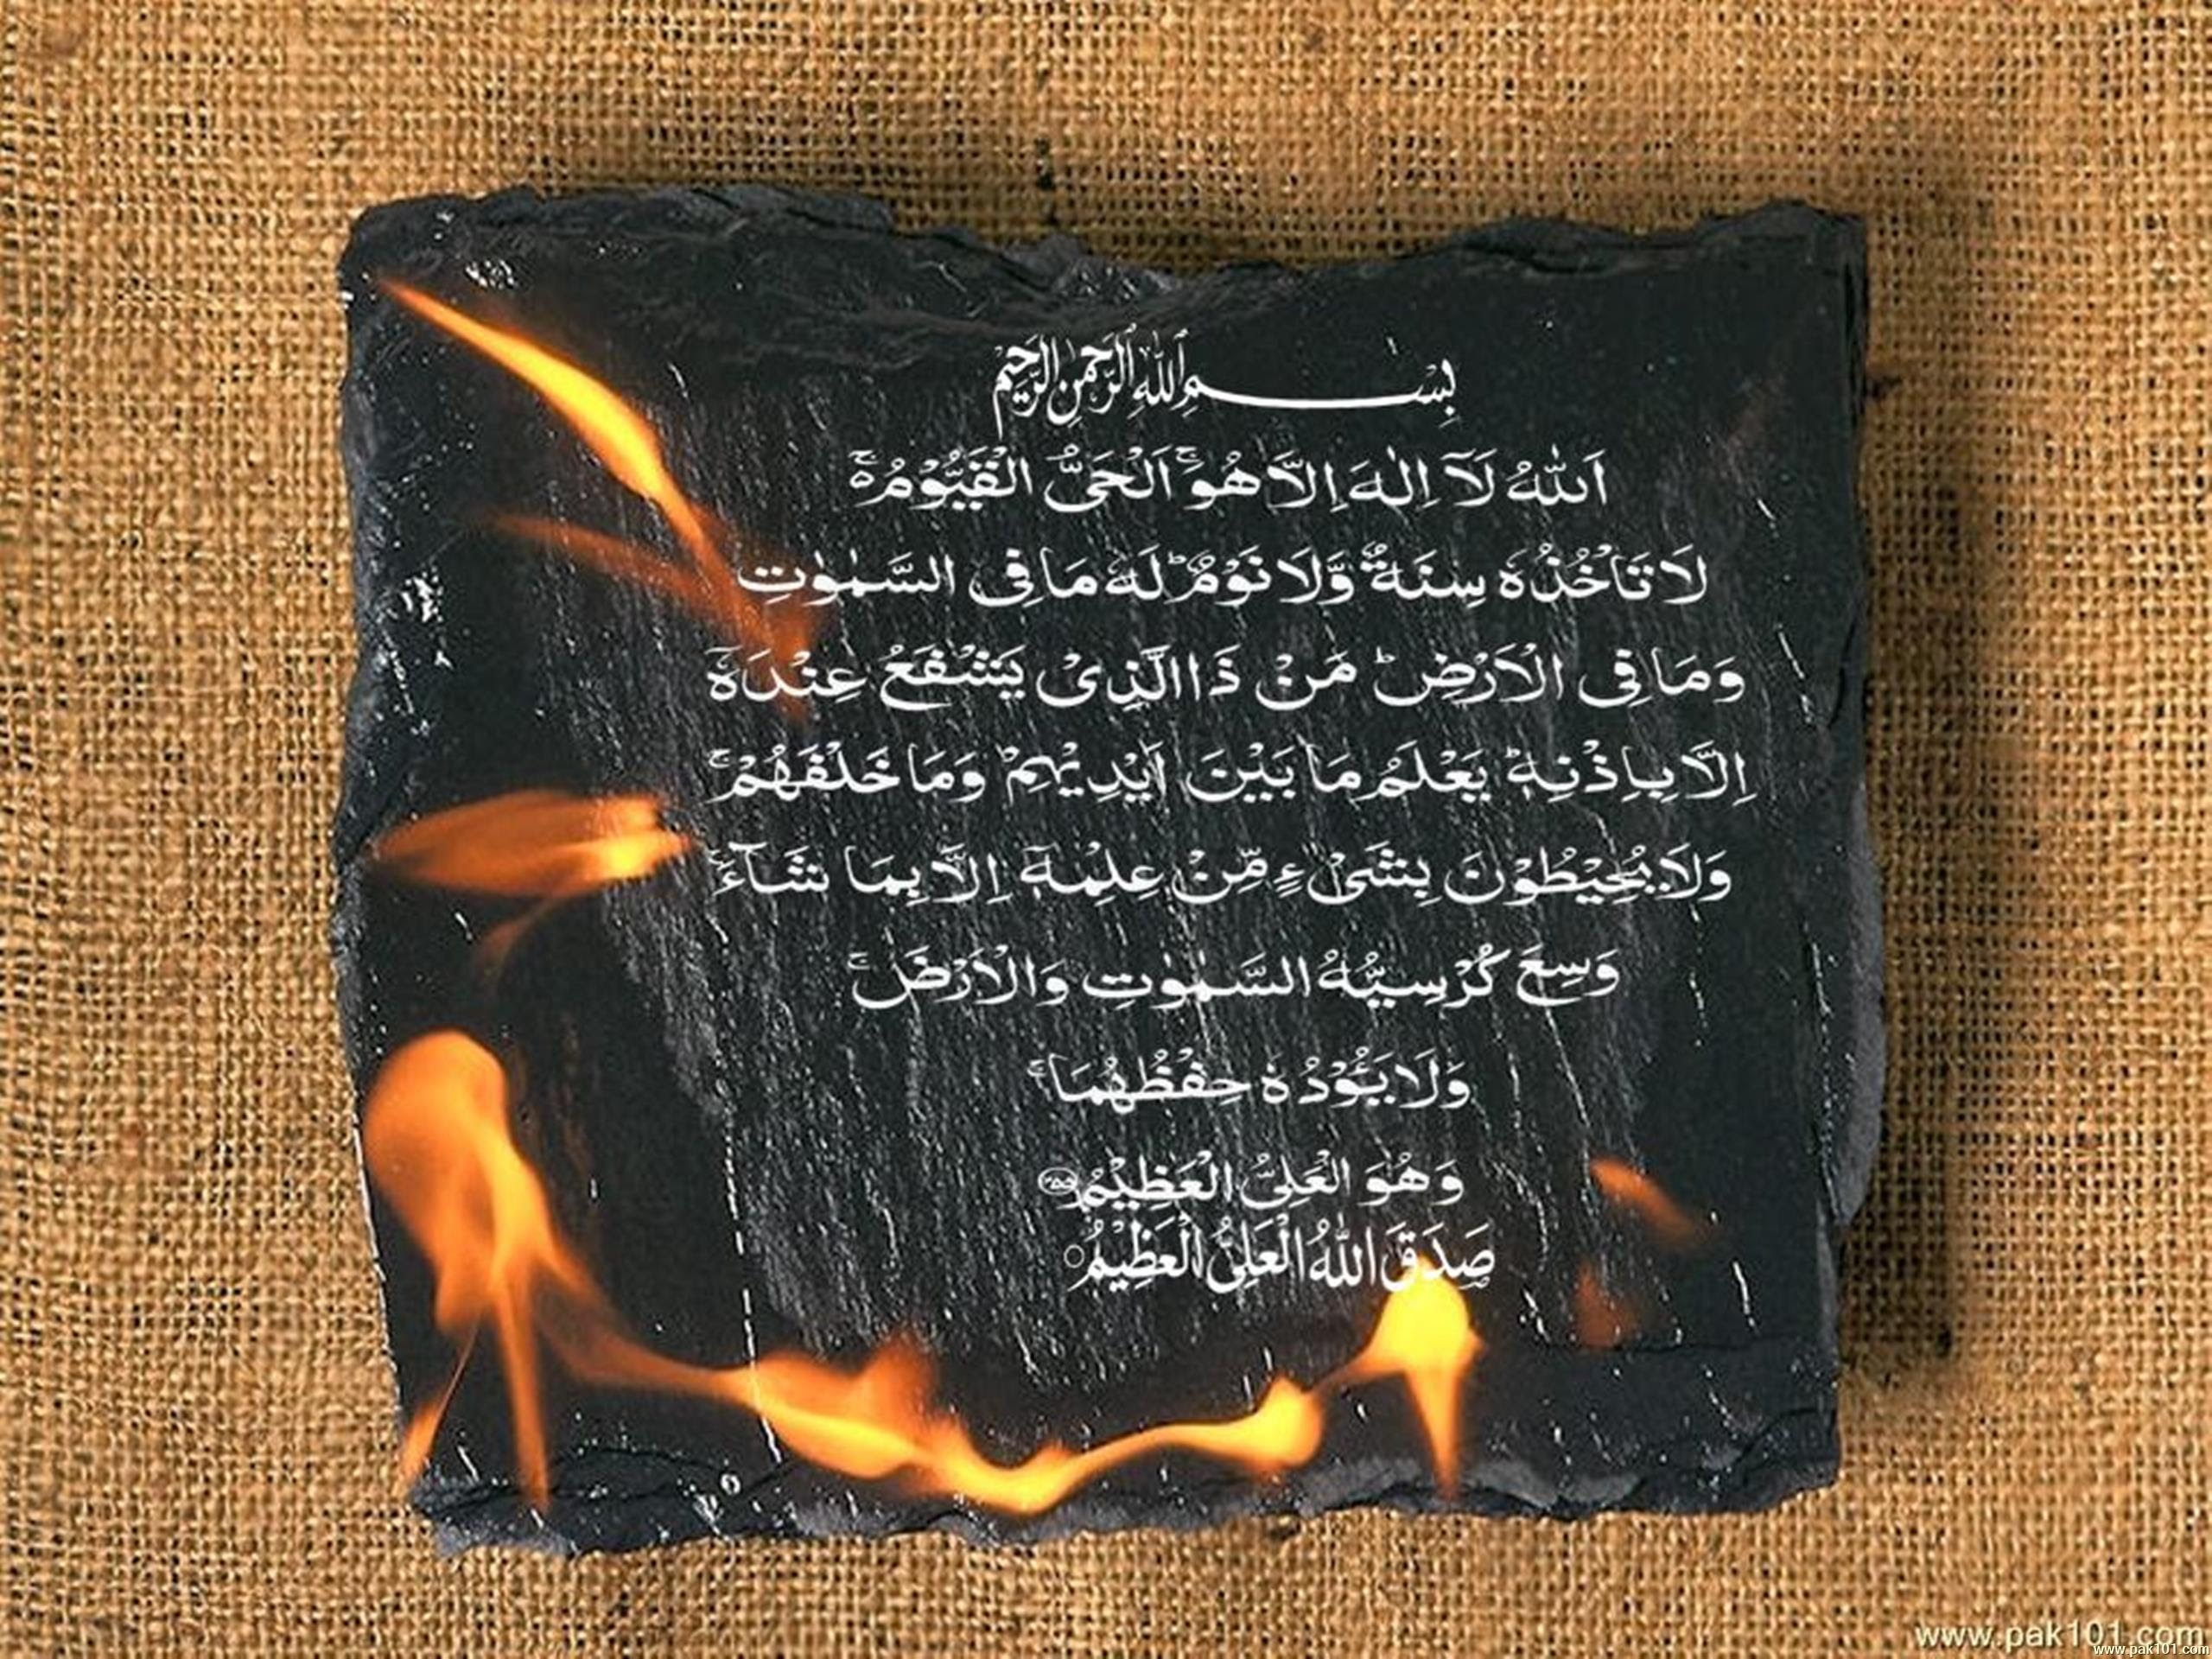 بِسْمِ ٱللَّٰهِ ٱلرَّحْمَٰنِ ٱلرَّحِيمِ
اَللّٰهُ لَاۤ اِلٰهَ اِلَّا هُوَۚ اَلْحَیُّ الْقَیُّوْمُ ۬ۚ
لَا تَاْخُذُهٗ سِنَةٌ وَّلَا نَوْمٌؕ لَهٗ مَا فِی السَّمٰوٰتِ
وَمَا فِی الْاَرْضِؕ مَنْ ذَا الَّذِیْ یَشْفَعُ عِنْدَهٗۤ
اِلَّا بِاِذْنِهٖؕ یَعْلَمُ مَا بَیْنَ اَیْدِیْهِمْ وَمَا خَلْفَهُمْۚ
وَلَا یُحِیْطُوْنَ بِشَیْءٍ مِّنْ عِلْمِهٖۤ اِلَّا بِمَا شَآءَۚ
وَسِعَ كُرْسِیُّهُ السَّمٰوٰتِ وَالْاَرْضَۚ
وَلَا یَـُٔوْدُهٗ حِفْظُهُمَاۚ
وَهُوَ الْعَلِیُّ الْعَظِیْمُ ۲۵۵
صَدَقَ اللّٰهُ الْعَلِیُّ الْعَظِیْمُ
www.pak101.com
www.pak101.com